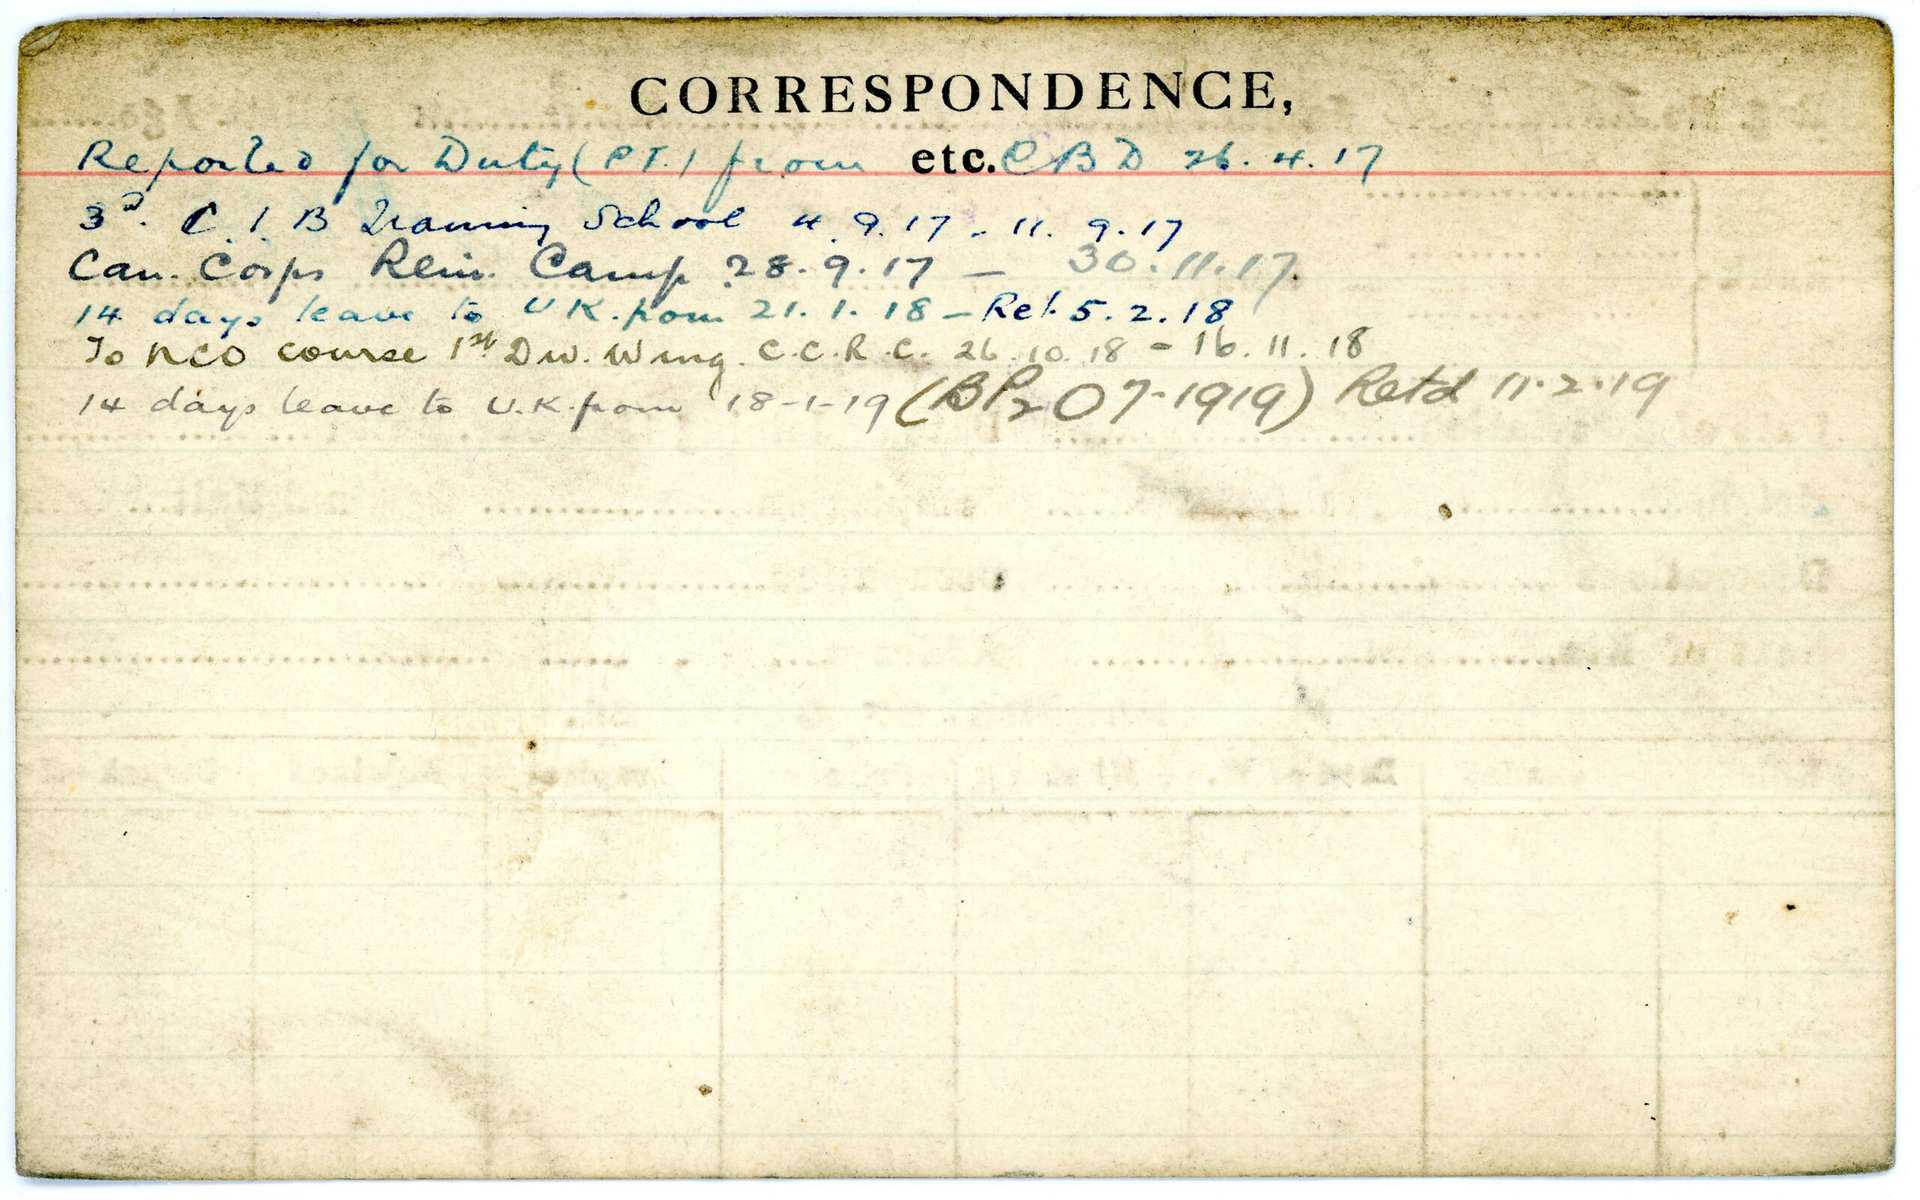 CORRESPONDENCE,
Reported for Duty (PT.) from etc. CBD 26.4.17
3d. C.I.B Training School 4.9.17 - 11.9.17
Can. Corps Rein. Camp 28.9.17 - 30.11.17.
14 days leave to UK. from 21.1.18 - Ret. 5.2.18
To NCO course 1st Div. Wing. C.C.R.C. 26.10.18 - 16.11.18
14 days leave to U.K. from 18-1-19 (BP2 O7-1919) Retd 11.2.19